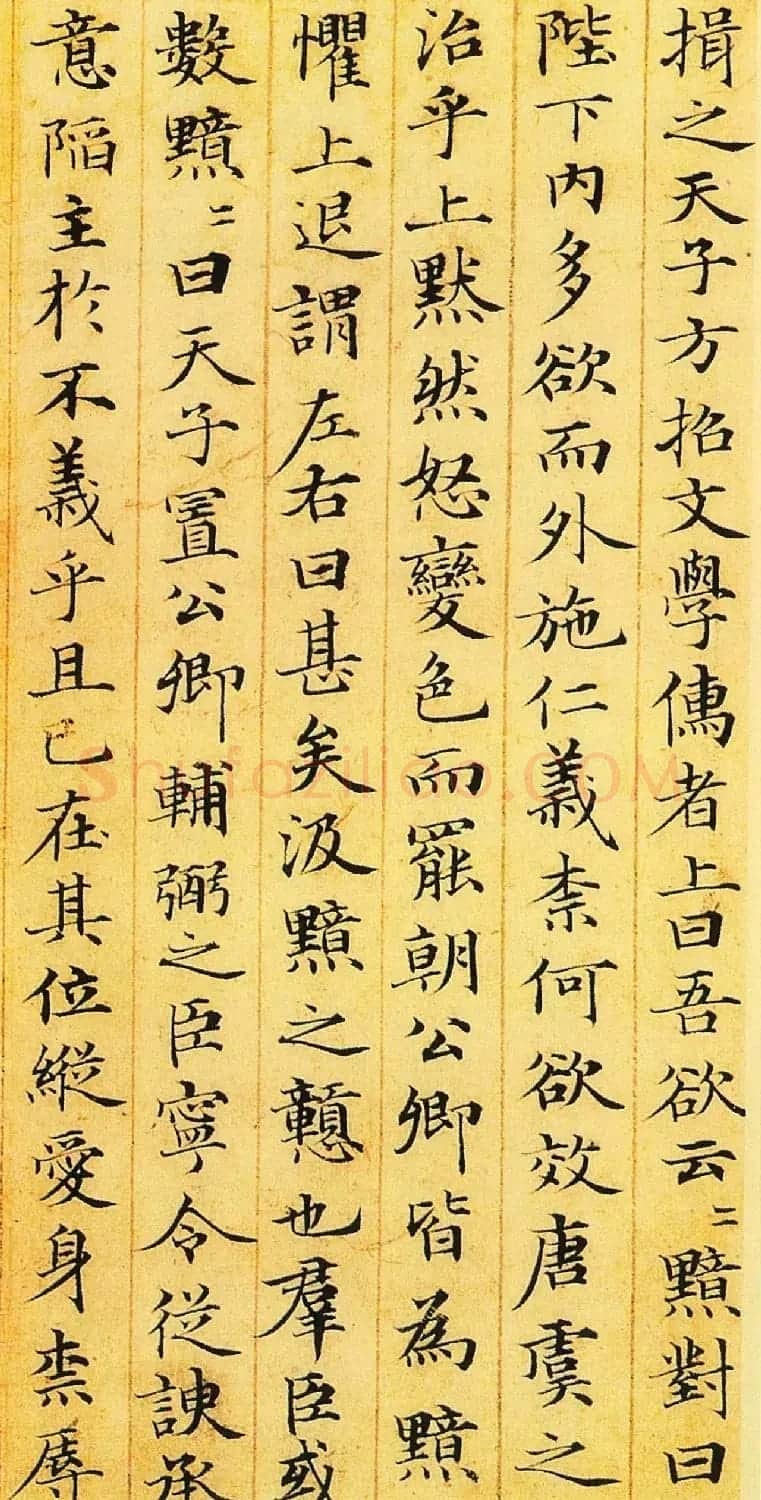 揖之天子方招文學儒者上曰吾欲云〻黯對曰
陛下内多欲而外施仁義柰何欲效唐虞之
治乎上黙然怒變色而罷朝公卿皆為黯
懼上退謂左右曰甚矣汲黯之戇也羣臣或
數黯〻曰天子置公卿輔弼之臣寧令從諛承
意陷主於不義乎且已在其位縱愛身柰辱
Shufaziliao.COM